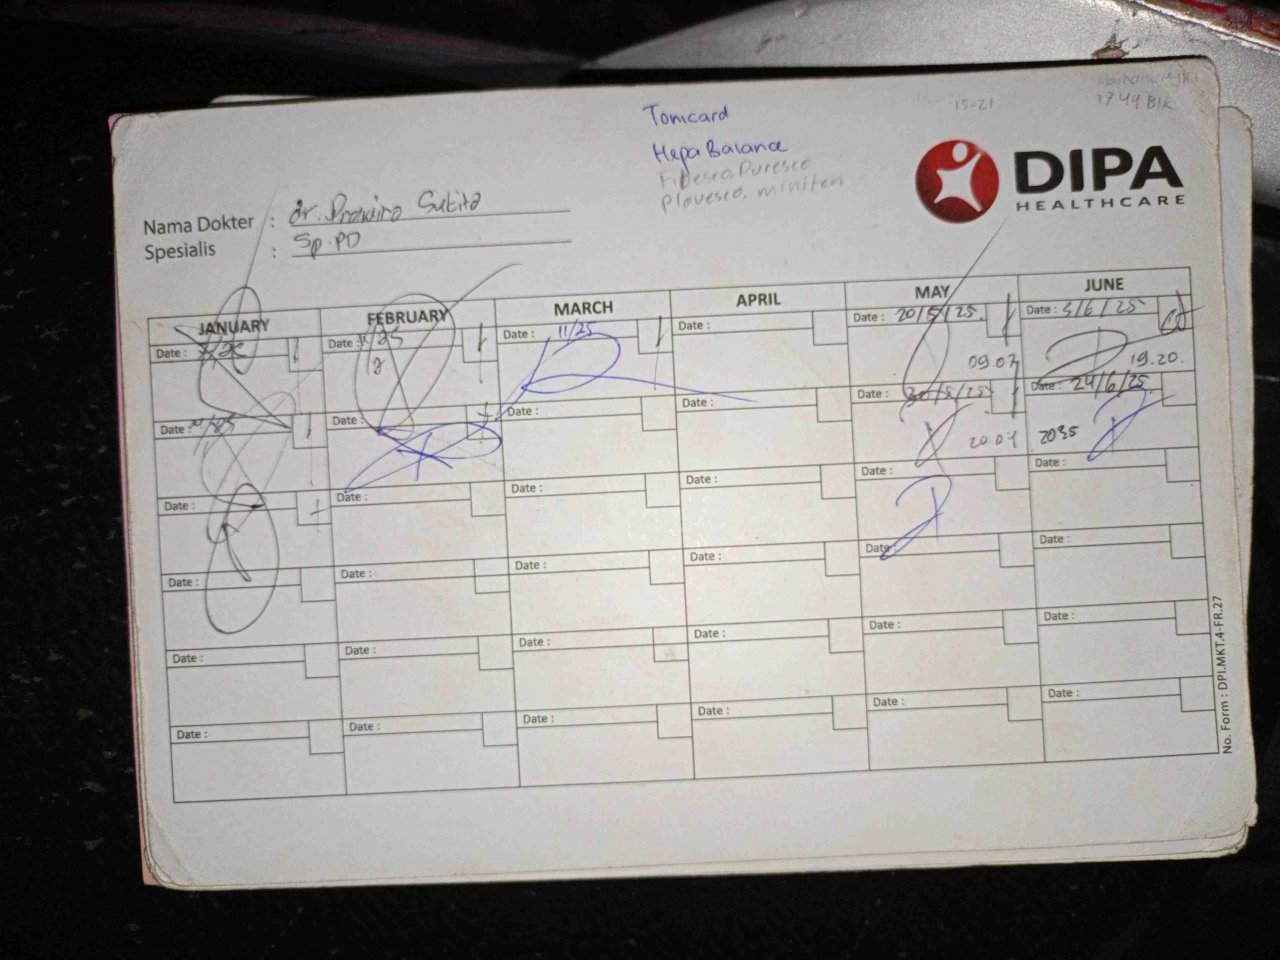 15-21
1749 BIR
Tomcard
Hepa Balance
Plovesco, miniten
DIPA
HEALTHCARE
Nama Dokter : dr.
Spesialis : Sp.PD
JANUARY FEBRUARY MARCH APRIL MAY JUNE
Date : Date : Date : 11/25 Date : Date : 20/5/25. Date : 3/6/25
09.07 19.20.
Date : Date : Date : Date : Date : Date : 24/6/25.
20 07 2035
Date : Date : Date : Date : Date : Date :
Date : Date : Date : Date : Date : Date :
Date : Date : Date : Date : Date : Date :
Date : Date : Date : Date : Date : Date :
No. Form : DPI.MKT.4-FR.27